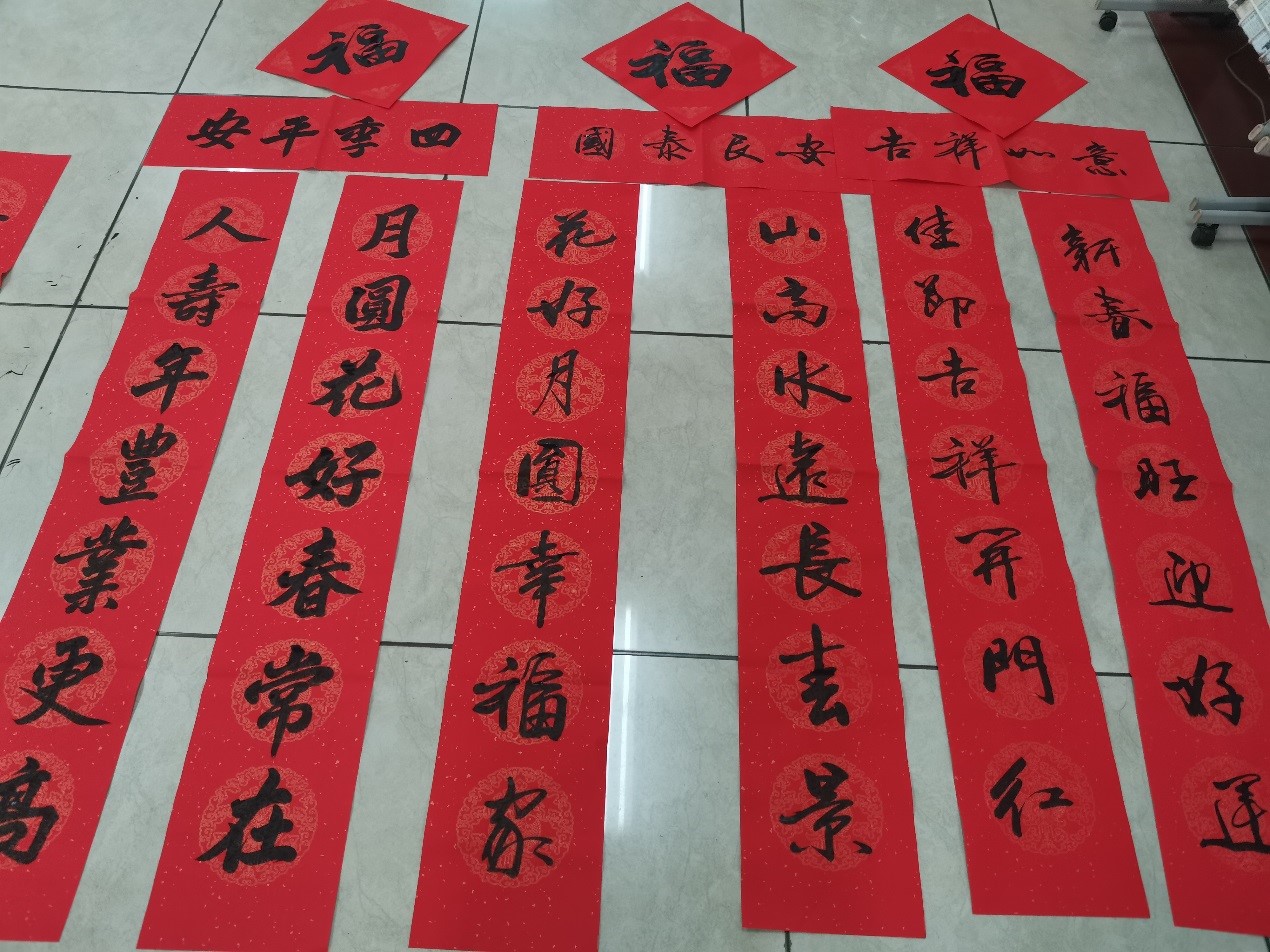 福
福
福
四季平安
國泰民安
吉祥如意
人壽年豐業更高
月圓花好春常在
花好月圓幸福家
山高水遠長去景
佳節吉祥开門紅
新春福旺迎好運